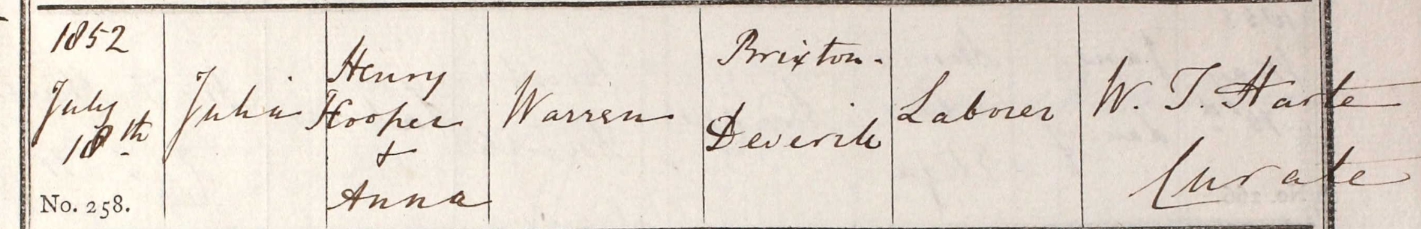 1852
July
18th
No. 258.
Julia
Henry
Hooper
+
Anna
Warren
Brixton-
Deverill
Laborer
W. T. Harte
Curate